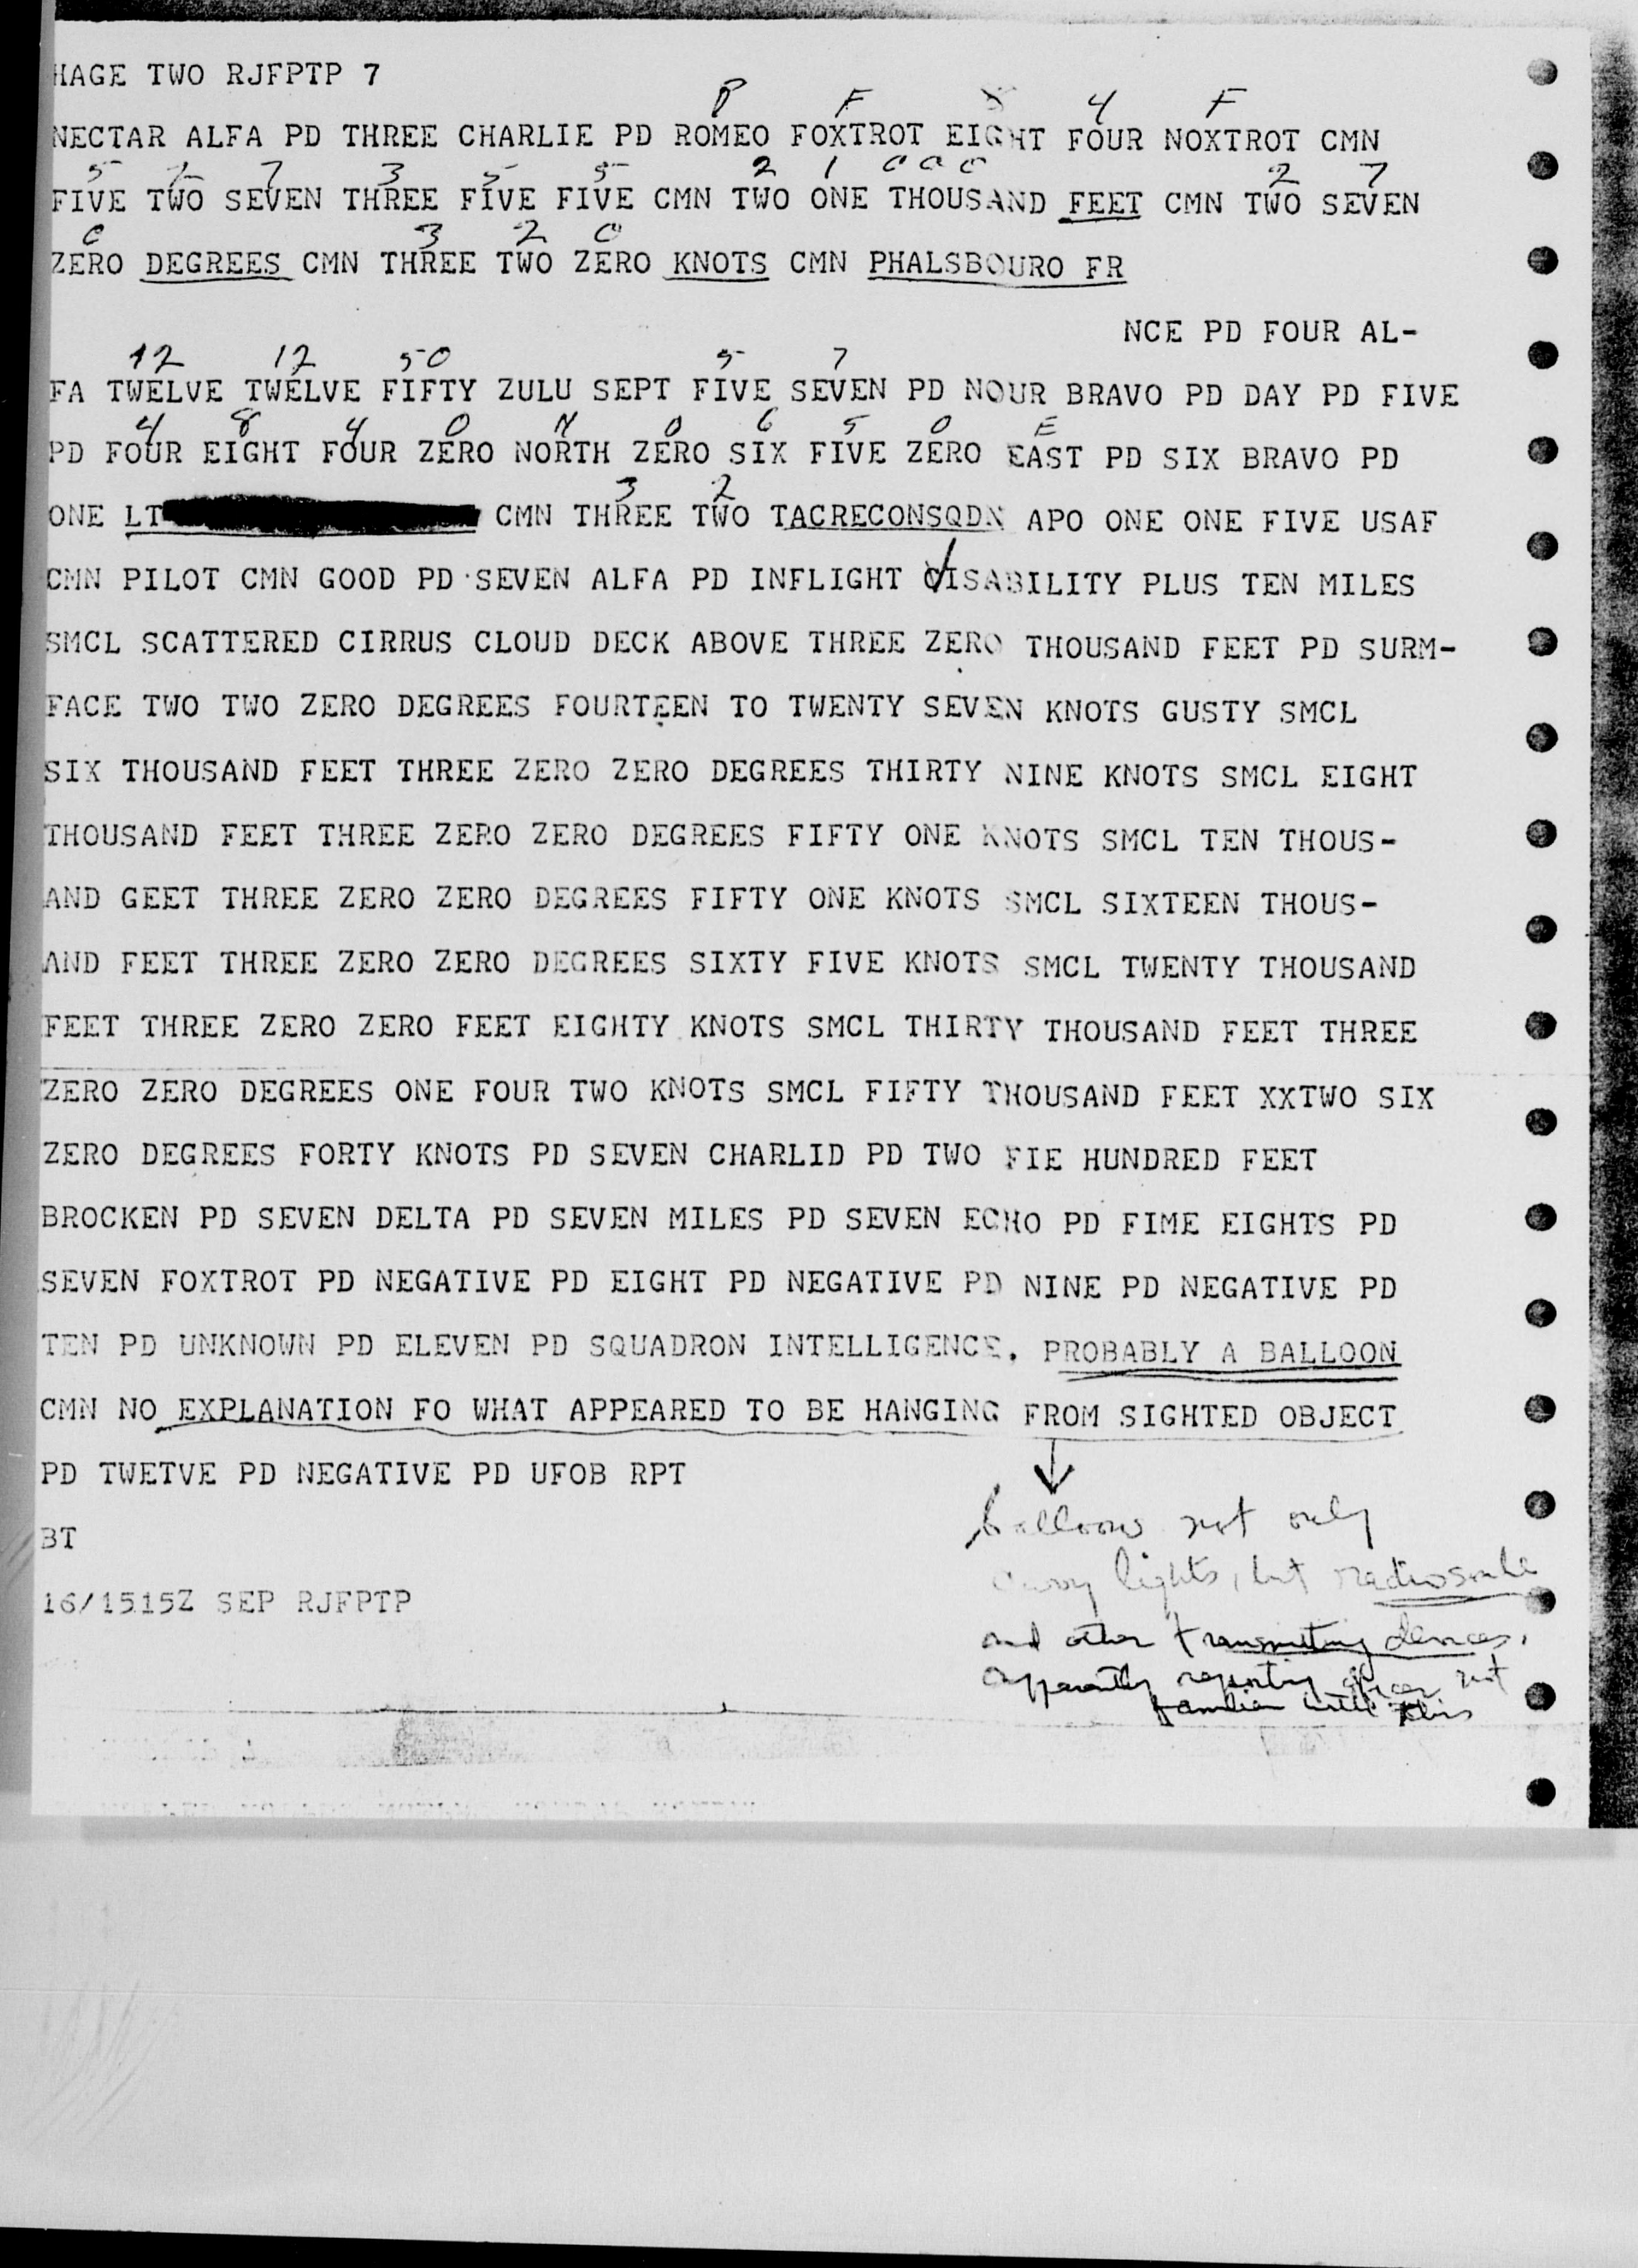 HAGE TWO RJFPTP 7
R F 8 4 F
NECTAR ALFA PD THREE CHARLIE PD ROMEO FOXTROT EIGHT FOUR NOXTROT CMN
5 2 7 3 5 5 2 1 000 2 7
FIVE TWO SEVEN THREE FIVE FIVE CMN TWO ONE THOUSAND FEET CMN TWO SEVEN
0 3 2 0
ZERO DEGREES CMN THREE TWO ZERO KNOTS CMN PHALSBOURO FR
NCE PD FOUR AL-
12 12 50 5 7
FA TWELVE TWELVE FIFTY ZULU SEPT FIVE SEVEN PD NOUR BRAVO PD DAY PD FIVE
4 8 4 0 N 0 6 5 0 E
PD FOUR EIGHT FOUR ZERO NORTH ZERO SIX FIVE ZERO EAST PD SIX BRAVO PD
3 2
ONE LT CMN THREE TWO TACRECONSQDN APO ONE ONE FIVE USAF
CMN PILOT CMN GOOD PD SEVEN ALFA PD INFLIGHT VISABILITY PLUS TEN MILES
SMCL SCATTERED CIRRUS CLOUD DECK ABOVE THREE ZERO THOUSAND FEET PD SURM-
FACE TWO TWO ZERO DEGREES FOURTEEN TO TWENTY SEVEN KNOTS GUSTY SMCL
SIX THOUSAND FEET THREE ZERO ZERO DEGREES THIRTY NINE KNOTS SMCL EIGHT
THOUSAND FEET THREE ZERO ZERO DEGREES FIFTY ONE KNOTS SMCL TEN THOUS-
AND GEET THREE ZERO ZERO DEGREES FIFTY ONE KNOTS SMCL SIXTEEN THOUS-
AND FEET THREE ZERO ZERO DEGREES SIXTY FIVE KNOTS SMCL TWENTY THOUSAND
FEET THREE ZERO ZERO FEET EIGHTY KNOTS SMCL THIRTY THOUSAND FEET THREE
ZERO ZERO DEGREES ONE FOUR TWO KNOTS SMCL FIFTY THOUSAND FEET XXTWO SIX
ZERO DEGREES FORTY KNOTS PD SEVEN CHARLID PD TWO FIE HUNDRED FEET
BROCKEN PD SEVEN DELTA PD SEVEN MILES PD SEVEN ECHO PD FIME EIGHTS PD
SEVEN FOXTROT PD NEGATIVE PD EIGHT PD NEGATIVE PD NINE PD NEGATIVE PD
TEN PD UNKNOWN PD ELEVEN PD SQUADRON INTELLIGENCE. PROBABLY A BALLOON
CMN NO EXPLANATION FO WHAT APPEARED TO BE HANGING FROM SIGHTED OBJECT
PD TWETVE PD NEGATIVE PD UFOB RPT
BT
16/1515Z SEP RJFPTP
balloons not only
carry lights, but radiosonde
and other transmitting devices,
apparently reporting officer not
familiar with this